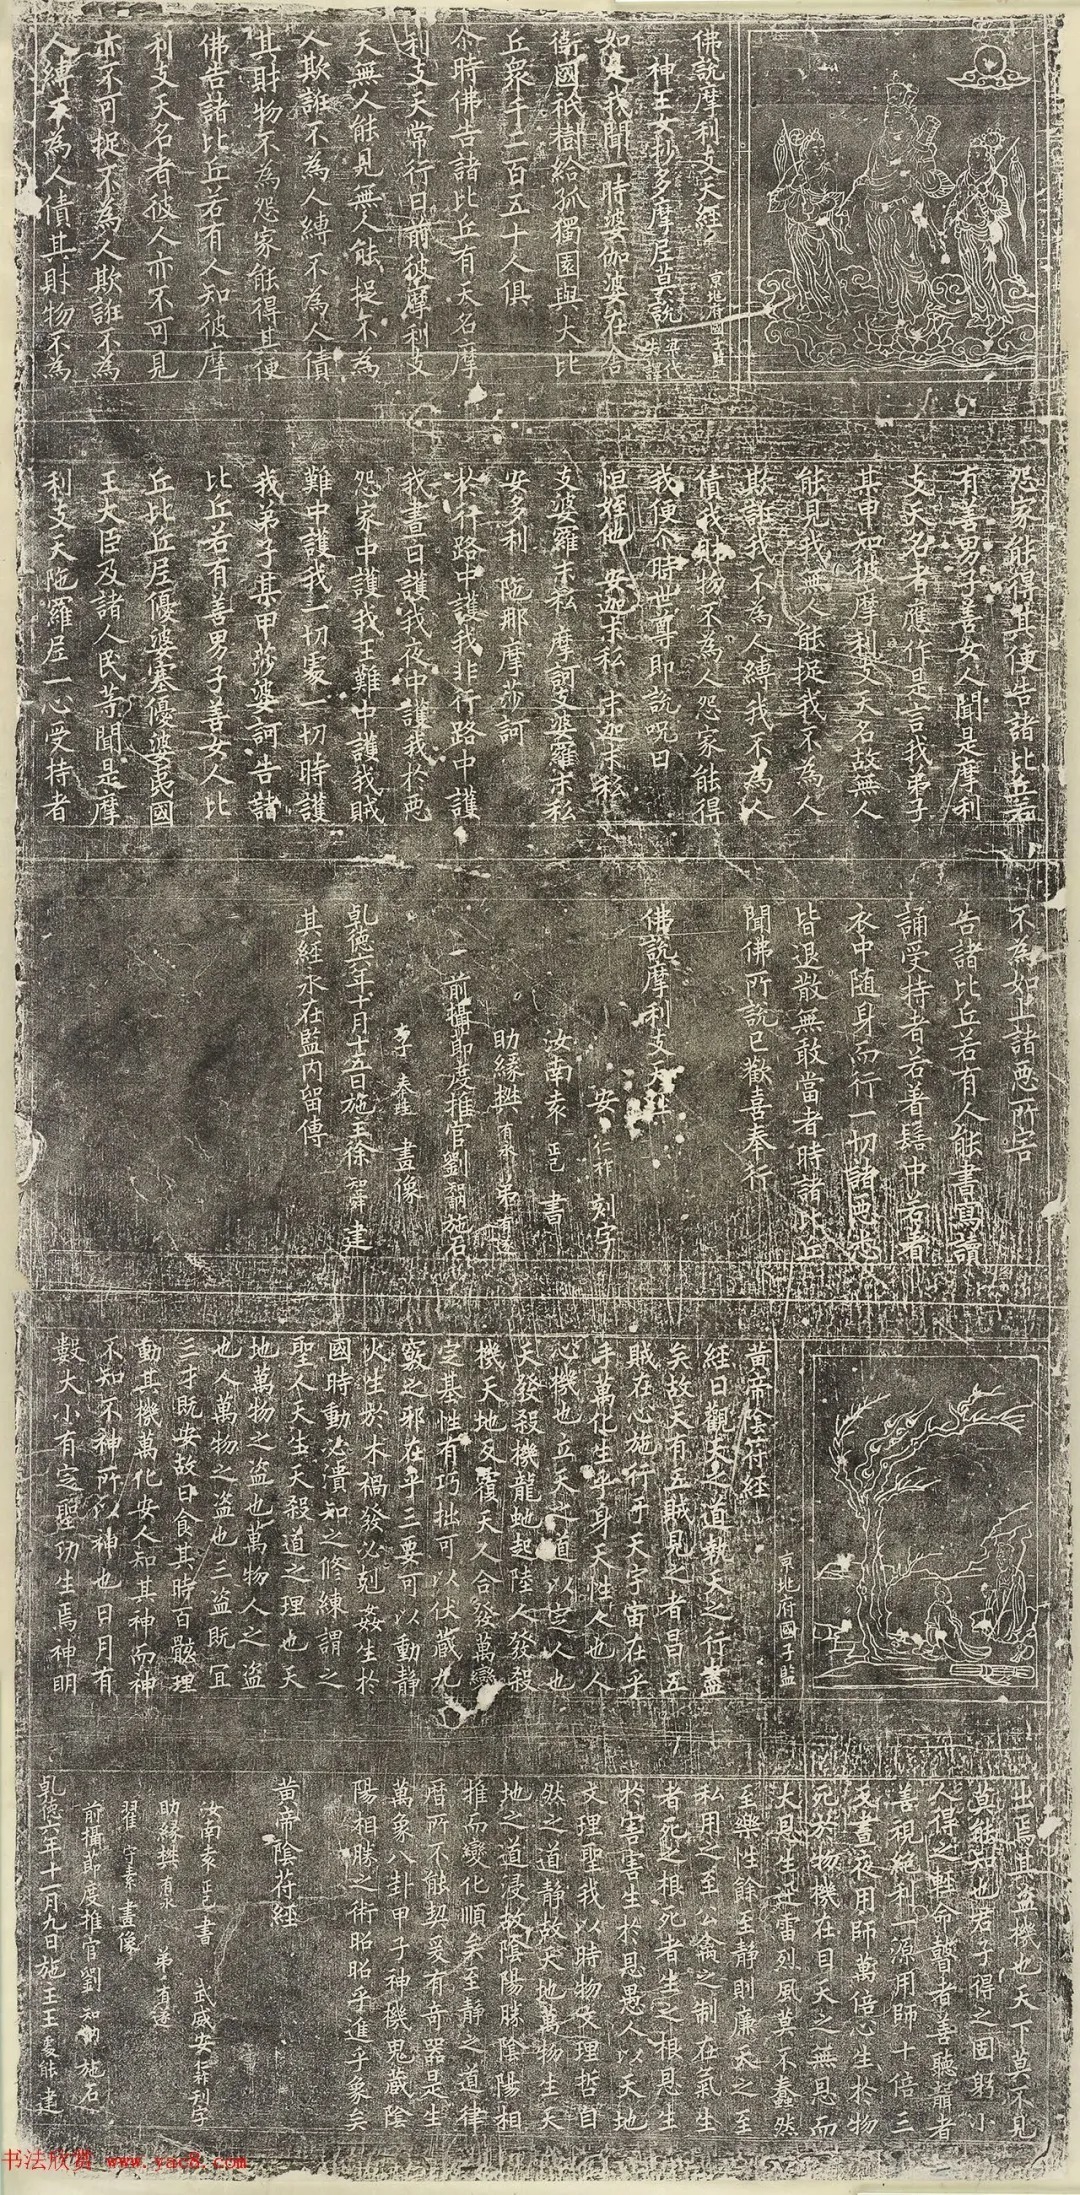 佛說摩利支天經
京兆府國子監
神王女抄多摩尼莫說 失譯
如是我聞一時婆伽婆在舍
衛國祇樹給孤獨園與大比
丘眾千二百五十人俱
尒時佛告諸比丘有天名摩
利支天常行日前彼摩利支
天無人能見無人能捉不為
人欺誑不為人縛不為人債
其財物不為怨家能得其便
佛告諸比丘若有人知彼摩
利支天名者彼人亦不可見
亦不可捉不為人欺誑不為
人縛不為人債其財物不為
怨家能得其便告諸比丘若
有善男子善女人聞是摩利
支天名者應作是言我弟子
某甲知彼摩利支天名故無人
能見我無人能捉我不為人
欺誑我不為人縛我不為人
債我財物不為人怨家能得
我便尒時世尊即說呪曰
怛姪他 安迦末私 末迦末私
支婆羅末私 摩訶支婆羅末私
安多利 陁那摩莎訶
於行路中護我非行路中護
我晝日護我夜中護我於惡
怨家中護我王難中護我賊
難中護我一切處一切時護
我弟子某甲莎婆訶告諸
比丘若有善男子善女人比
丘比丘尼優婆塞優婆夷國
王大臣及諸人民等聞是摩
利支天陁羅尼一心受持者
不為如上諸惡所害
告諸比丘若有人能書寫讀
誦受持者若著髻中若著
衣中随身而行一切諸惡悉
皆退散無敢當者時諸比丘
聞佛所說已歡喜奉行
佛說摩利支天經
安仁祚 刻字
汝南袁正己 書
助緣樊有永 弟有遂
前攝節度推官劉知訥施石
李奉珪 畫像
乹德六年十月十五日施主徐知舜建
其經永在監內留傳
黃帝陰符經
京兆府國子監
經曰觀天之道執天之行盡
矣故天有五賊見之者昌五
賊在心施行于天宇宙在乎
手萬化生乎身天性人也人
心機也立天之道以定人也
天發殺機龍虵起陸人發殺
機天地反覆天人合發萬變
定基性有巧拙可以伏藏九
竅之邪在乎三要可以動靜
火生於木禍發必剋姦生於
國時動必潰知之修練謂之
聖人天生天殺道之理也天
地萬物之盜也萬物人之盜
也人萬物之盜也三盜既宜
三才既安故曰食其時百骸理
動其機萬化安人知其神而神
不知不神所以神也日月有
數大小有定聖功生焉神明
出焉其盜機也天下莫不見
莫能知也君子得之固躬小
人得之輕命瞽者善聽聾者
善視絕利一源用師十倍三
反晝夜用師萬倍心生於物
死於物機在目天之無恩而
大恩生迅雷烈風莫不蠢然
至樂性餘至靜則廉天之至
私用之至公禽之制在氣生
者死之根死者生之根恩生
於害害生於恩愚人以天地
文理聖我以時物文理哲自
然之道靜故天地萬物生天
地之道浸故陰陽勝陰陽相
推而變化順矣至靜之道律
曆所不能契爰有奇器是生
萬象八卦甲子神機鬼藏陰
陽相勝之術昭昭乎進乎象矣
黃帝陰符經
汝南袁正己書 武威安仁祚刊字
助緣樊有永 弟有遂
翟守素畫像
前攝節度推官劉知訥施石
乹德六年十一月九日施主王處能建
书法欣赏 www.yac8.com